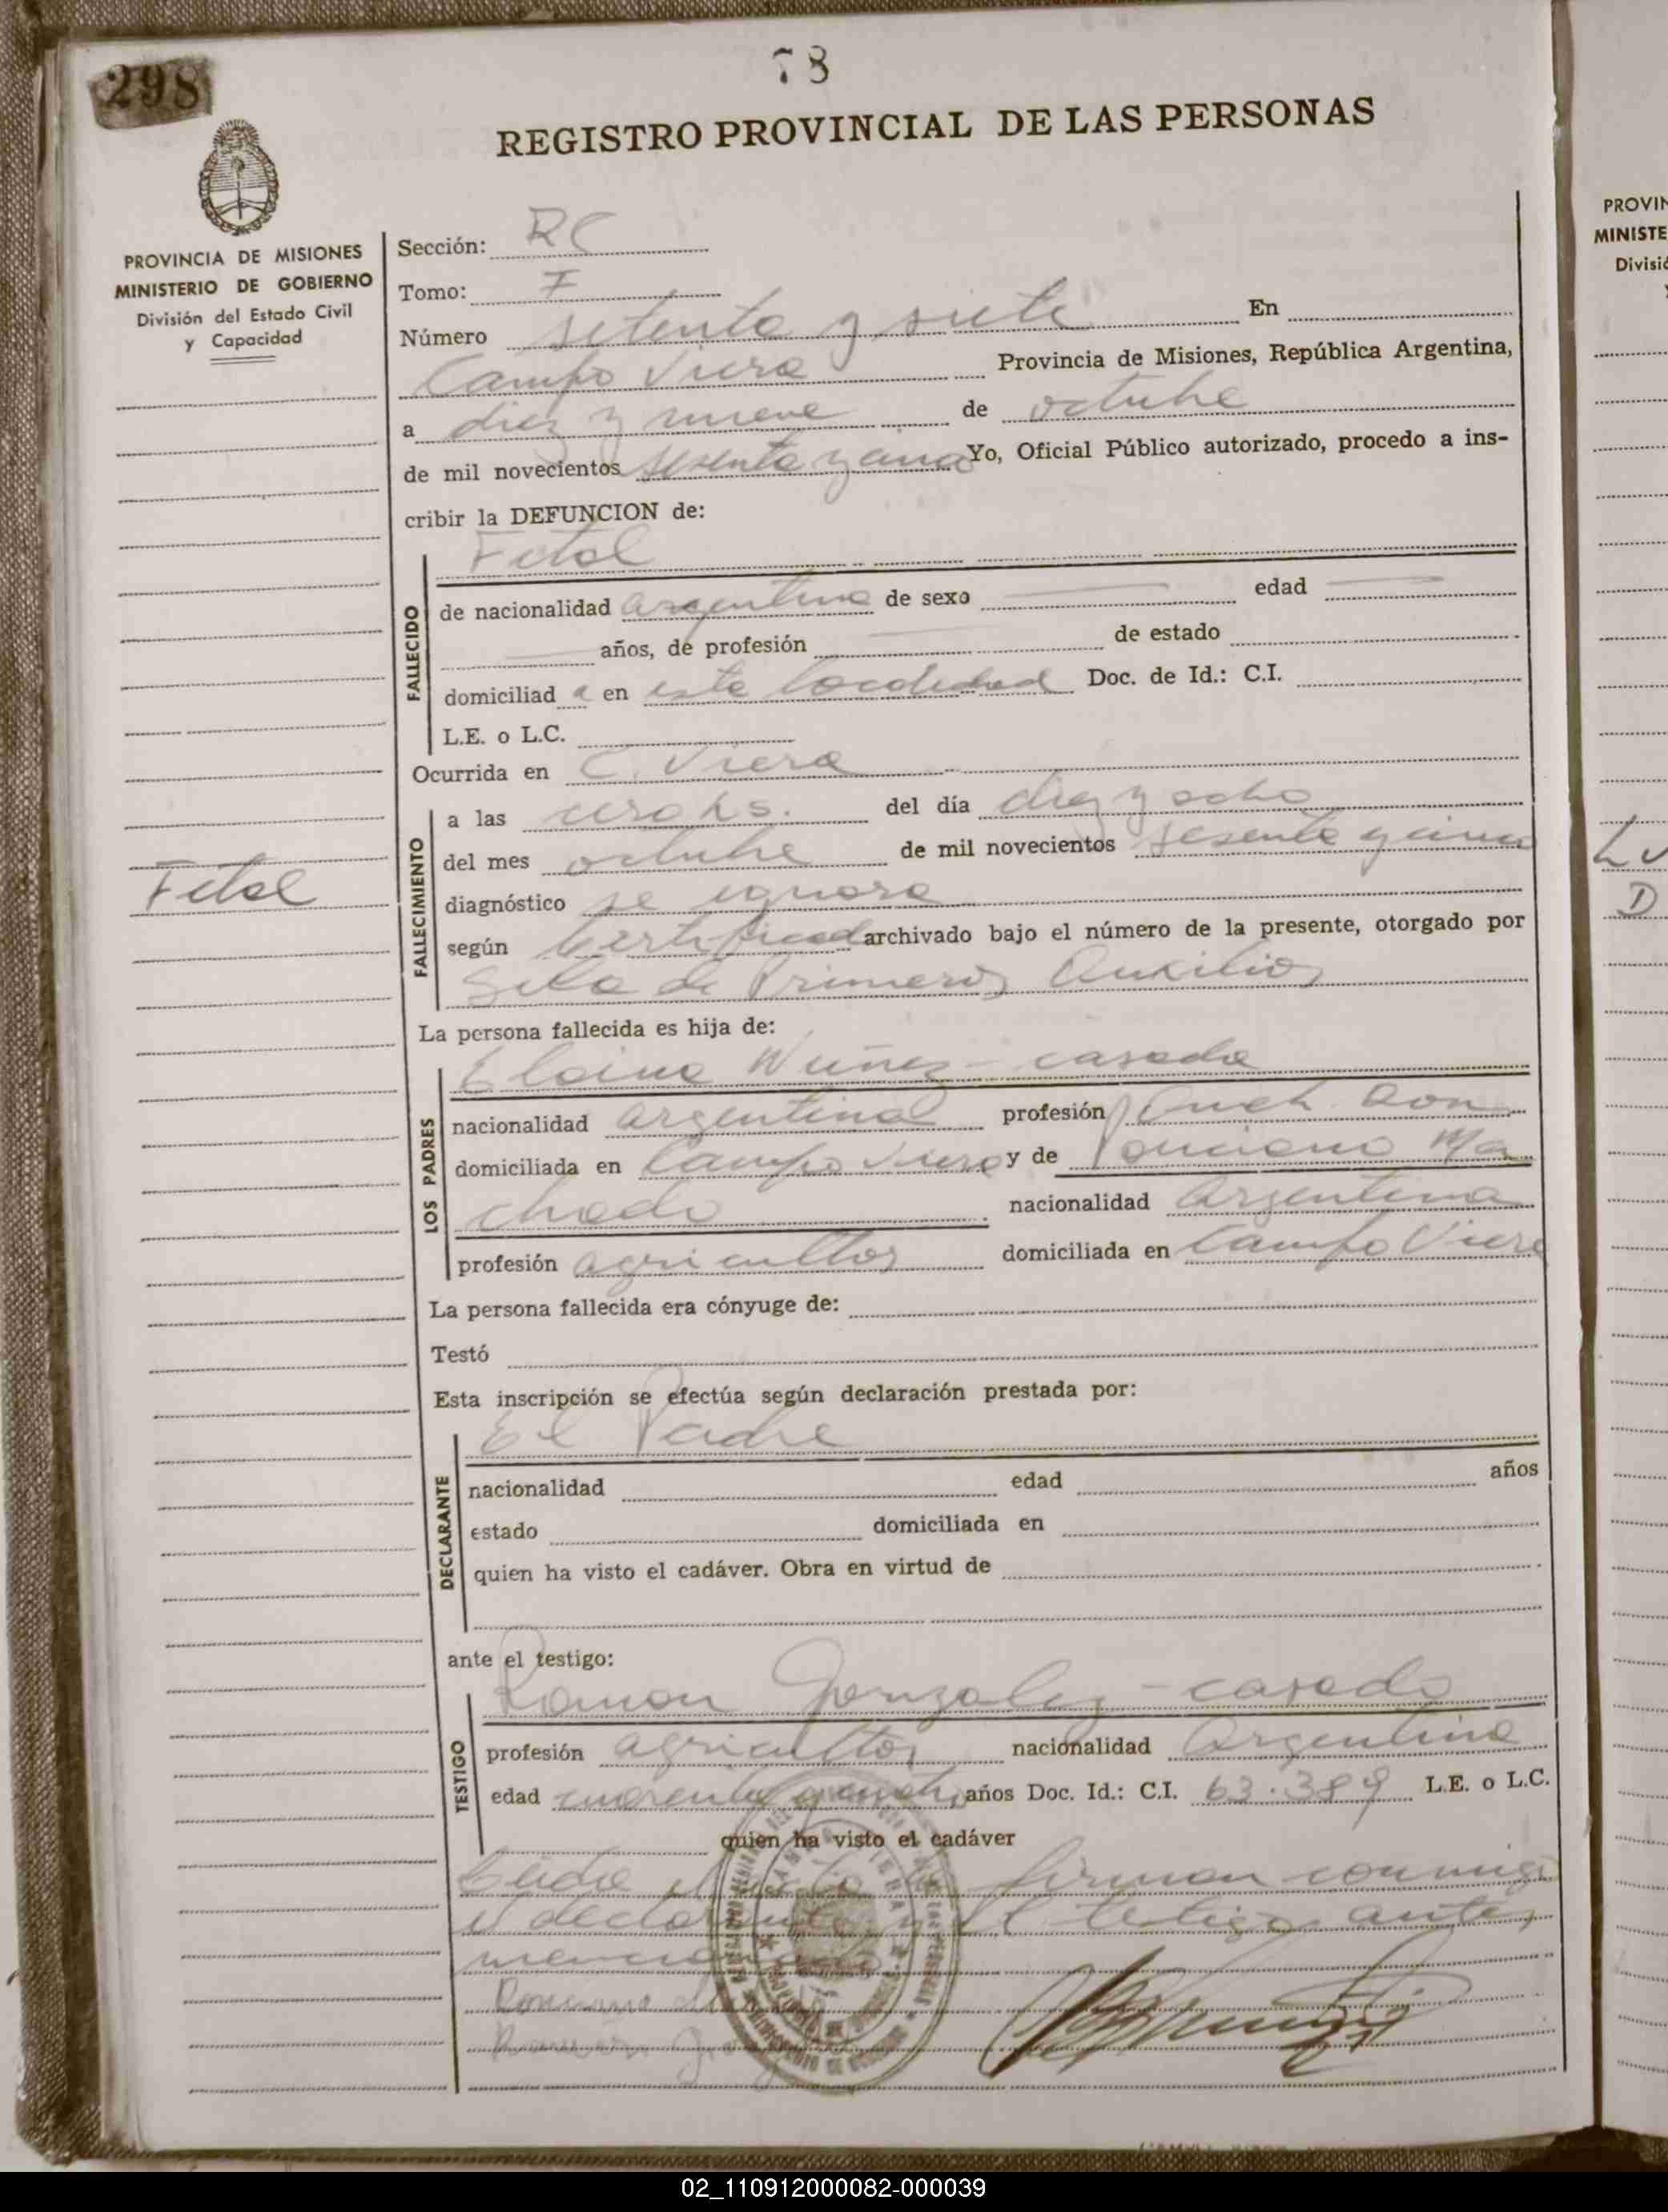 298
78
REGISTRO PROVINCIAL DE LAS PERSONAS
PROVINCIA DE MISIONES
MINISTERIO DE GOBIERNO
División del Estado Civil
y Capacidad
Fetal
Sección: RC
Tomo: F
Número setenta y siete En
Campo Viera Provincia de Misiones, República Argentina,
a diez y nueve de octubre
de mil novecientos sesenta y cinco Yo, Oficial Público autorizado, procedo a ins-
cribir la DEFUNCION de:
Fetal
FALLECIDO
de nacionalidad argentina de sexo edad
años, de profesión de estado
domiciliad a en esta localidad Doc. de Id.: C.I.
L.E. o L.C.
Ocurrida en C. Viera
FALLECIMIENTO
a las cero hs. del día diez y ocho
del mes octubre de mil novecientos sesenta y cinco
diagnóstico se ignora
según Certificado archivado bajo el número de la presente, otorgado por
Sala de Primeros Auxilios
La persona fallecida es hija de:
Elaina Nuñez - casada
LOS PADRES
nacionalidad argentina profesión Queh. Dom
domiciliada en Campo Viera y de Ponciano Ma
chado nacionalidad Argentina
profesión agricultor domiciliada en Campo Viera
La persona fallecida era cónyuge de:
Testó
Esta inscripción se efectúa según declaración prestada por:
El Padre
DECLARANTE
nacionalidad edad años
estado domiciliada en
quien ha visto el cadáver. Obra en virtud de
ante el testigo:
Ramon Gonzalez - casado
TESTIGO
profesión agricultor nacionalidad Argentina
edad cuarenta y años Doc. Id.: C.I. 63.389 L.E. o L.C.
quien ha visto el cadáver
Leida el acta la firman conmigo
el declarante y el testigo antes
mencionado
Ponciano
Ramon
PROVIN
MINISTE
Divisió
D
02_110912000082-000039